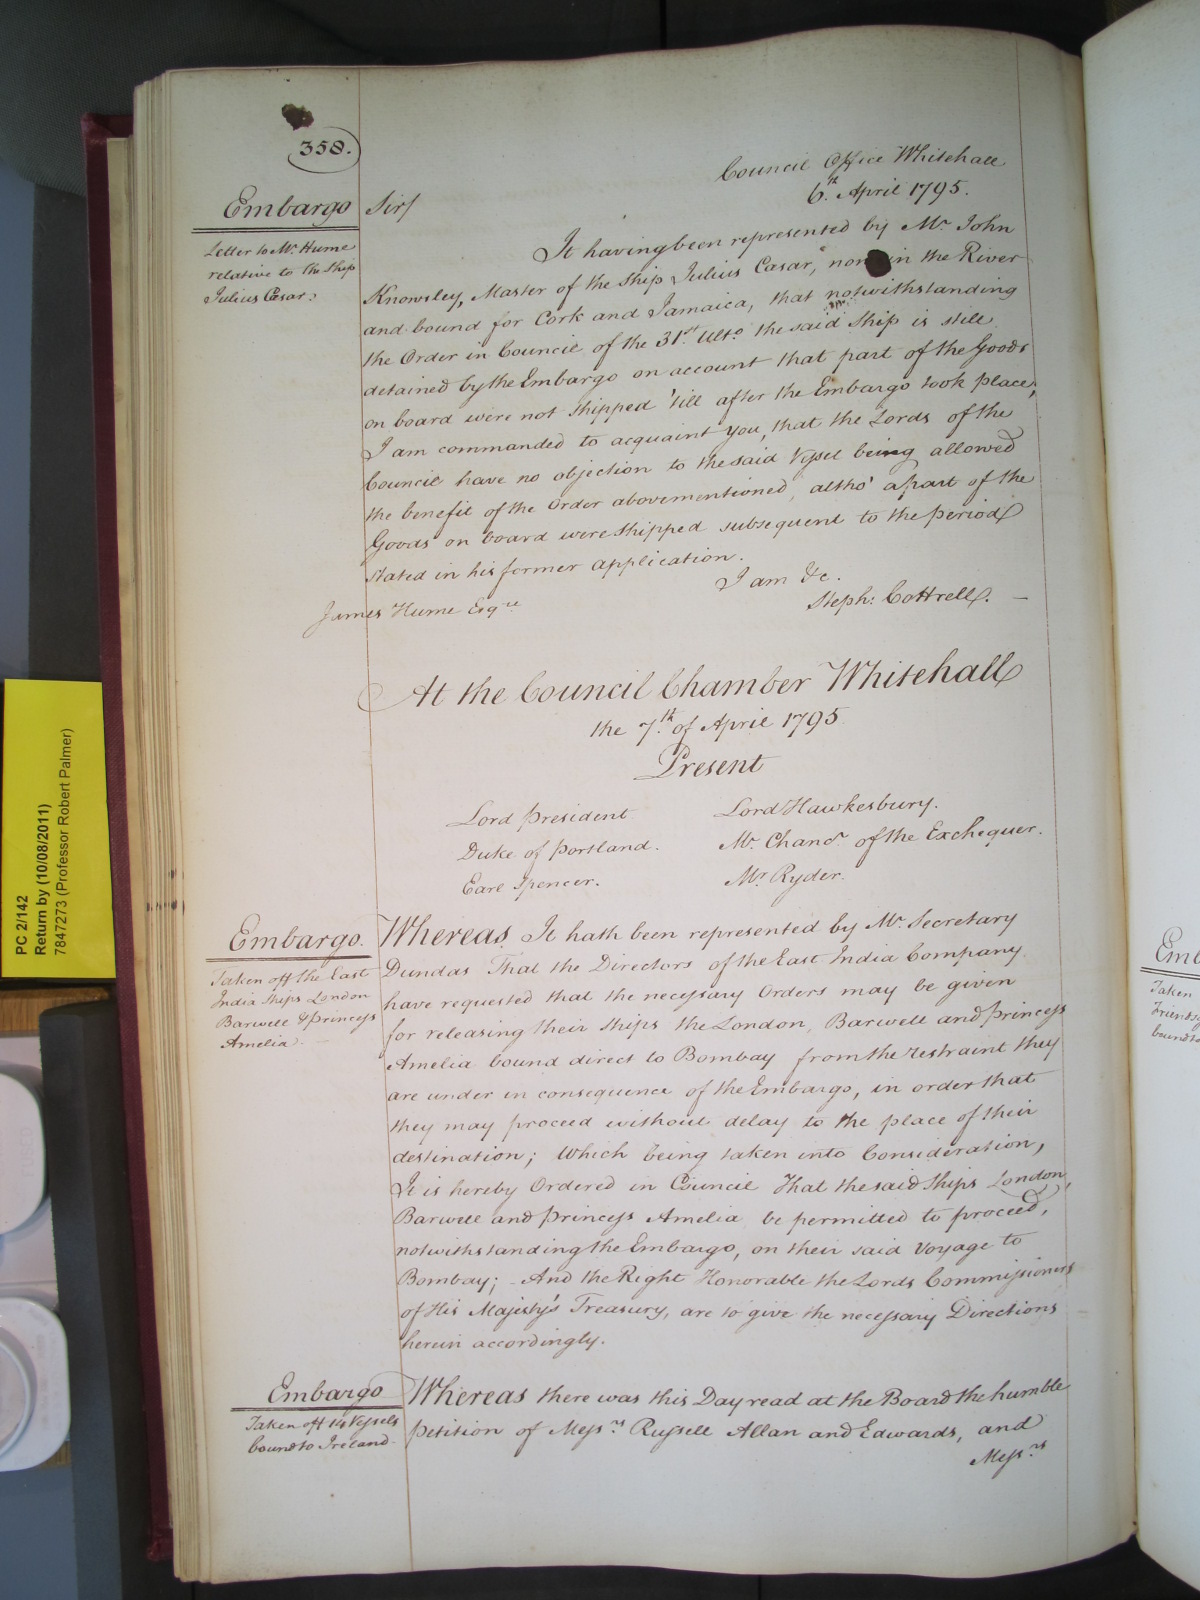 358.
Council Office Whitehall
6th. April 1795.
Embargo
Letter to Mr. Hume
relative to the Ship
Julius Cesar.
Sir/
It having been represented by Mr. John
Knowsley, Master of the Ship Julius Casar, now in the River
and bound for Cork and Jamaica, that notwithstanding
the Order in Council of the 31st. Ulto. the said Ship is still
detained by the Embargo on account that part of the Goods
on board were not shipped 'till after the Embargo took place,
I am commanded to acquaint You, that the Lords of the
Council have no objection to the said Vessel being allowed
the benefit of the Order abovementioned, altho' a part of the
Goods on board were Shipped subsequent to the period
stated in his former application.
I am &c.
Steph: Cottrell. —
James Hume Esqre
At the Council Chamber Whitehall
the 7th. of April 1795
Present
Lord President. Lord Hawkesbury.
Duke of Portland. Mr. Chancr. of the Exchequer.
Earl Spencer. Mr. Ryder.
Embargo.
Taken off the East
India Ships London
Barwell & Princess
Amelia.
Whereas It hath been represented by Mr. Secretary
Dundas That the Directors of the East India Company
have requested that the necessary Orders may be given
for releasing their Ships the London, Barwell and Princess
Amelia bound direct to Bombay from the restraint they
are under in consequence of the Embargo, in order that
they may proceed without delay to the place of their
destination; Which being taken into Consideration,
It is hereby Ordered in Council That the said Ships London,
Barwell and Princess Amelia be permitted to proceed,
notwithstanding the Embargo, on their said Voyage to
Bombay; - And the Right Honorable the Lords Commissioners
of His Majesty's Treasury, are to give the necessary Directions
herein accordingly.
Embargo
Taken off 14 Vessels
bound to Ireland.
Whereas there was this Day read at the Board the humble
Petition of Messrs. Russell Allan and Edwards, and
Messrs.
PC 2/142
Return by (10/08/2011)
7847273 (Professor Robert Palmer)
Emb
Taken